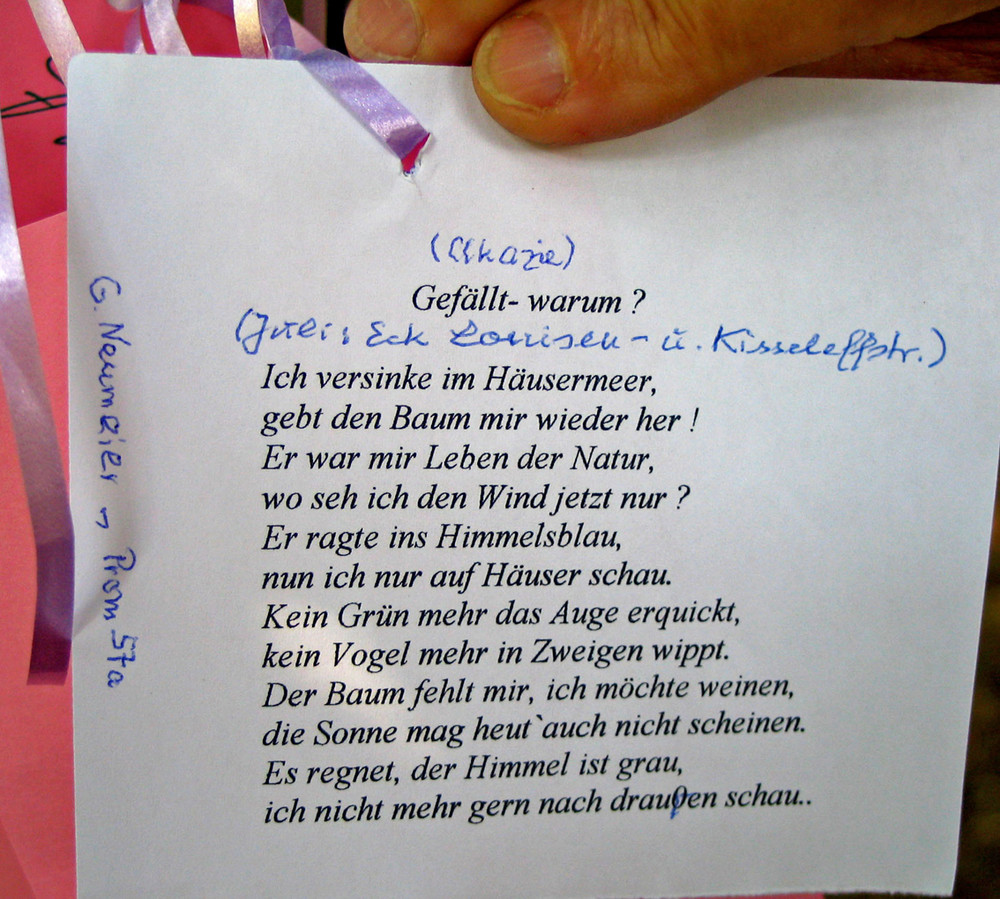 (Akazie)
Gefällt- warum ?
(Juli: Eck Louisen- u. Kisseleffstr.)
Ich versinke im Häusermeer,
gebt den Baum mir wieder her !
Er war mir Leben der Natur,
wo seh ich den Wind jetzt nur ?
Er ragte ins Himmelsblau,
nun ich nur auf Häuser schau.
Kein Grün mehr das Auge erquickt,
kein Vogel mehr in Zweigen wippt.
Der Baum fehlt mir, ich möchte weinen,
die Sonne mag heut`auch nicht scheinen.
Es regnet, der Himmel ist grau,
ich nicht mehr gern nach draußen schau..
G. Neumeier → Prom 57a